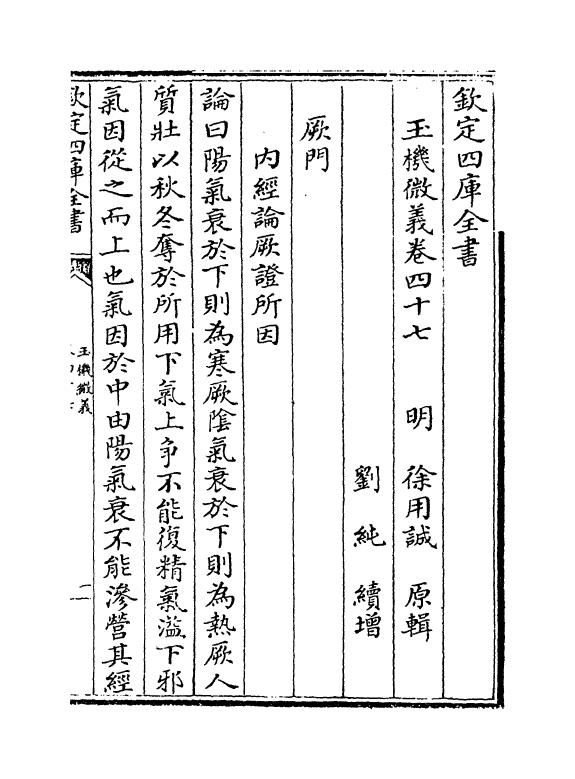 欽定四庫全書
玉機微義卷四十七　明　徐用誠　原輯
劉純　續增
厥門
內經論厥證所因
論曰陽氣衰於下則為寒厥陰氣衰於下則為熱厥人
質壯以秋冬奪於所用下氣上争不能復精氣溢下邪
氣因從之而上也氣因於中由陽氣衰不能滲營其經
欽定四庫全書
玉機微義
一